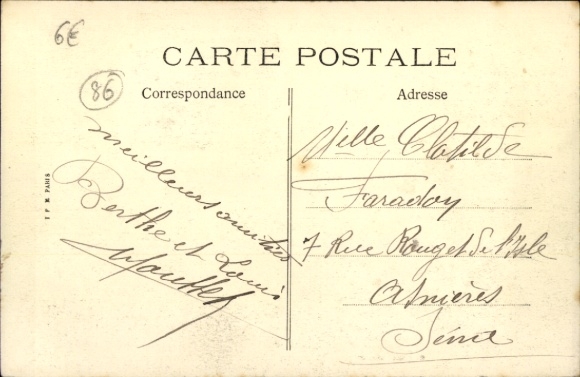 6€
CARTE POSTALE
86
Correspondance
Adresse
meilleurs amitiés
Berthe et Louis
Melle Clotilde
Faradoy
7 Rue Rouget de l'Isle
Asnières
Seine
PARIS